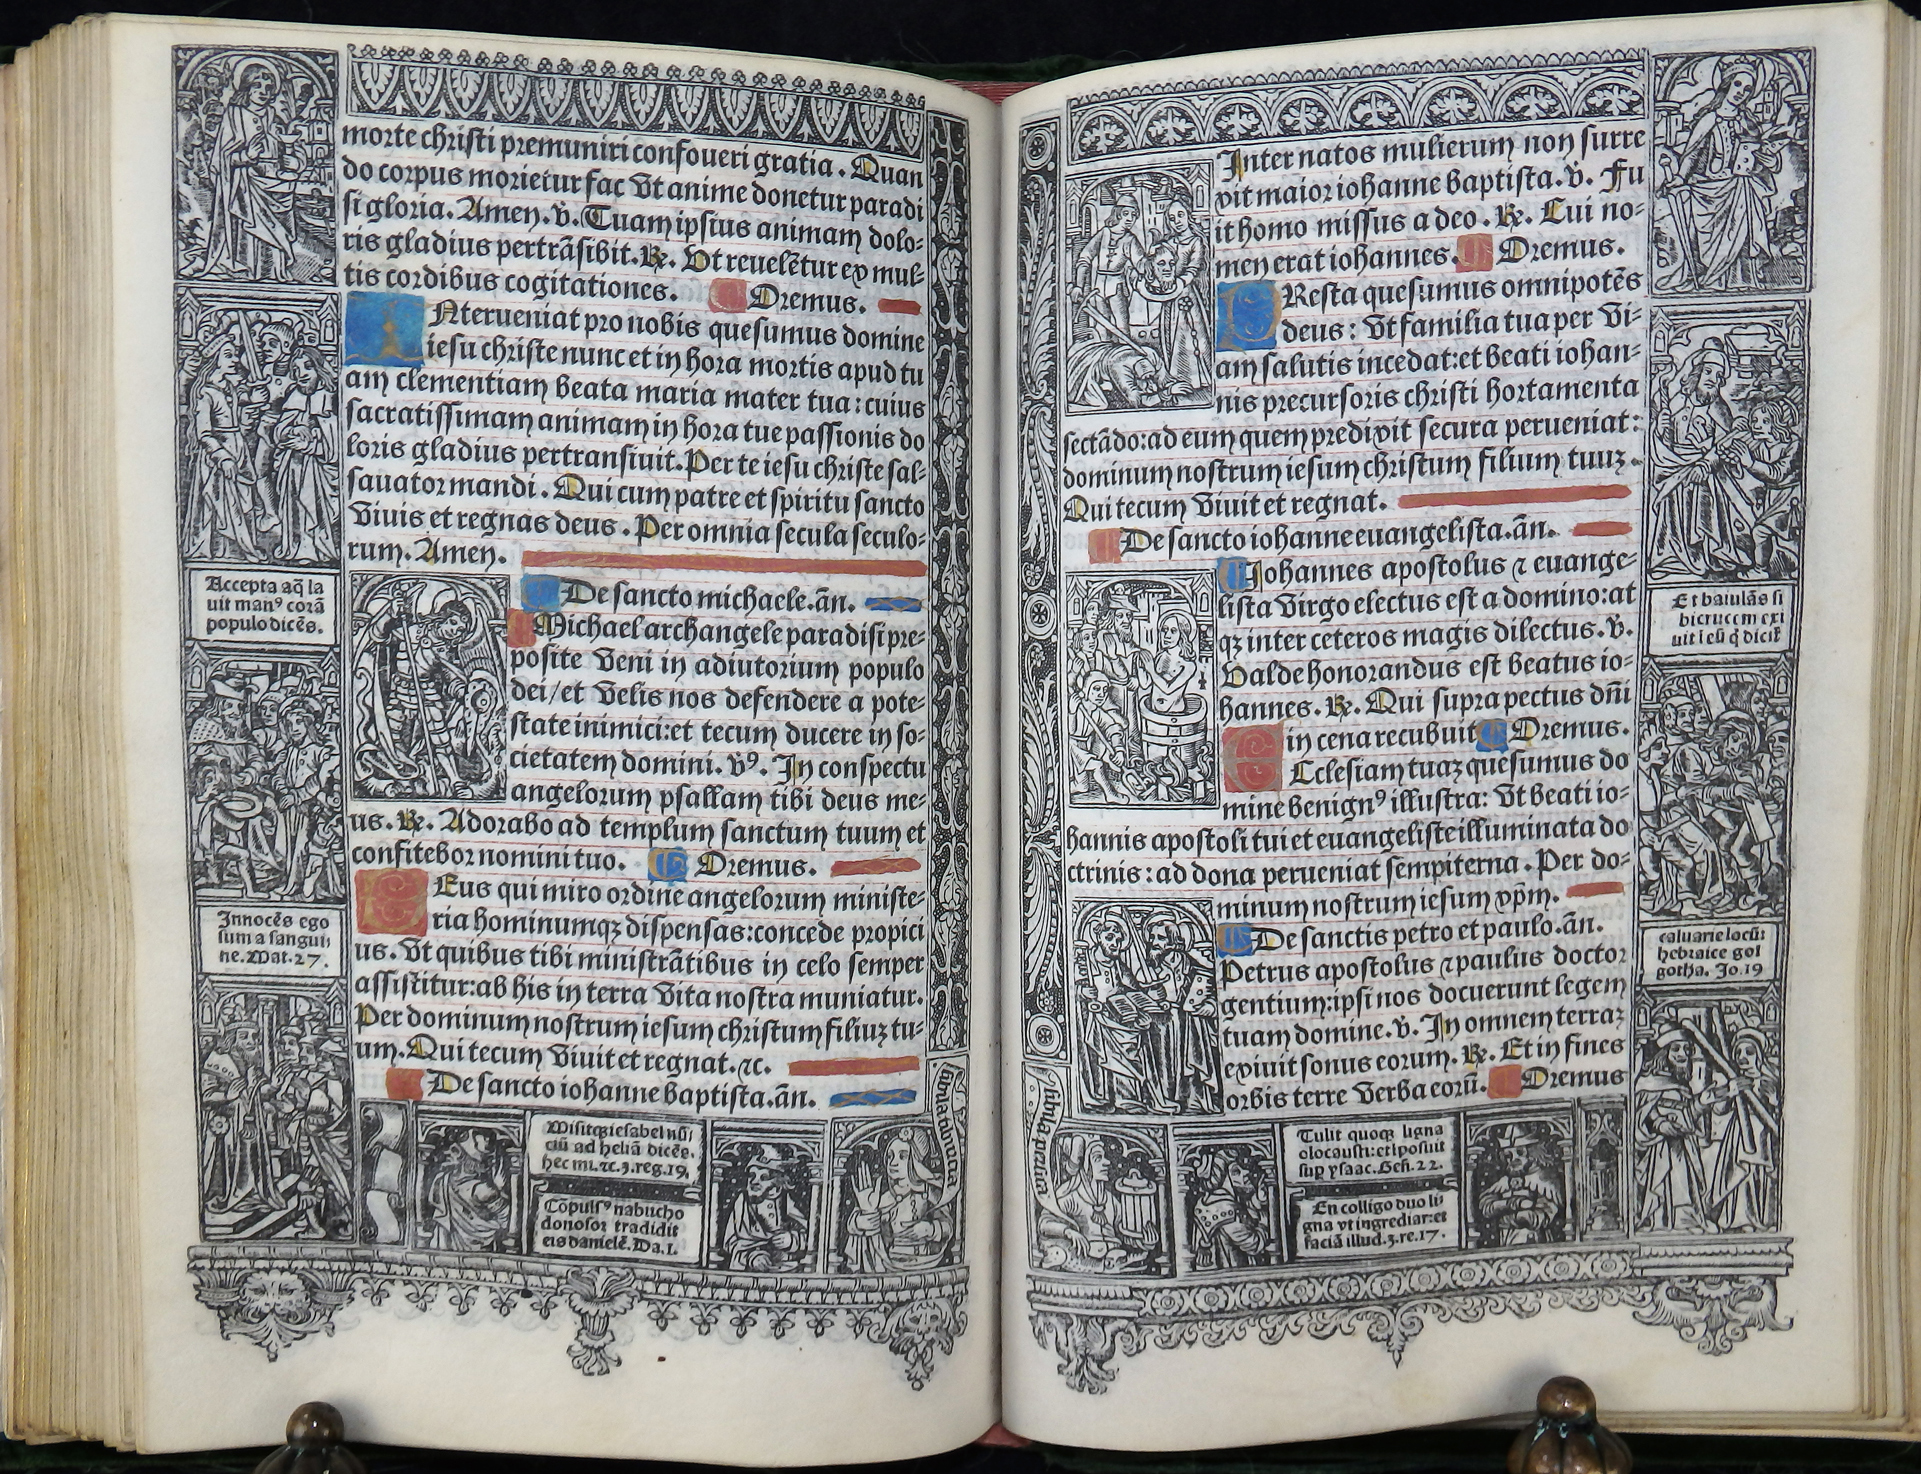 morte christi premuniri confoueri gratia. Quan
do corpus morietur fac vt anime donetur paradi
si gloria. Amen. v̄. Tuam ipsius animam dolo-
ris gladius pertrāsibit. R̄. Vt reuelētur ex mul-
tis cordibus cogitationes. Oremus.
INterueniat pro nobis quesumus domine
iesu christe nunc et in hora mortis apud tu
am clementiam beata maria mater tua: cuius
sacratissimam animam in hora tue passionis do
loris gladius pertransiuit. Per te iesu christe sal-
sauator mandi. Qui cum patre et spiritu sancto
viuis et regnas deus. Per omnia secula seculo-
rum. Amen.
De sancto michaele. añ.
Michael archangele paradisi pre-
posite veni in adiutorium populo
dei/et velis nos defendere a pote-
state inimici: et tecum ducere in so-
cietatem domini. vꝰ. In conspectu
angelorum psallam tibi deus me-
us. R̄. Adorabo ad templum sanctum tuum et
confitebor nomini tuo. Oremus.
Eus qui miro ordine angelorum ministe-
ria hominumqꝫ dispensas: concede propici
us. Vt quibus tibi ministrātibus in celo semper
assistitur: ab his in terra vita nostra muniatur.
Per dominum nostrum iesum christum filiuꝫ tu-
um. Qui tecum viuit et regnat. ⁊c.
De sancto iohanne baptista. añ.
Accepta aq̄ la
uit manꝰ corā
populo dicēs.
Innocēs ego
sum a sangui
ne. Mat. 27.
Misitqꝫ iesabel nū
ciū ad heliā dicēs.
hec mi. ⁊c. 3. reg. 19.
Cōpulsꝰ nabucho
donosor tradidit
eis danielē. Da. 1.
Inter natos mulierum non surre
xit maior iohanne baptista. v̄. Fu
it homo missus a deo. R̄. Cui no-
men erat iohannes. Oremus.
PResta quesumus omnipotēs
deus: vt familia tua per vi-
am salutis incedat: et beati iohan-
nis precursoris christi hortamenta
sectādo: ad eum quem predixit secura perueniat:
dominum nostrum iesum christum filium tuuꝫ.
Qui tecum viuit et regnat.
De sancto iohanne euangelista. añ.
Iohannes apostolus ⁊ euange-
lista virgo electus est a domino: at
qꝫ inter ceteros magis dilectus. v̄.
Valde honorandus est beatus io-
hannes. R̄. Qui supra pectus dñi
in cena recubuit Oremus.
ECclesiam tuaꝫ quesumus do
mine benignꝰ illustra: vt beati io-
hannis apostoli tui et euangeliste illuminata do
ctrinis: ad dona perueniat sempiterna. Per do-
minum nostrum iesum xp̄m.
De sanctis petro et paulo. añ.
Petrus apostolus ⁊ paulus doctor
gentium: ipsi nos docuerunt legem
tuam domine. v̄. In omnem terraꝫ
exiuit sonus eorum. R̄. Et in fines
orbis terre verba eorū. Oremus
Et baiulās si
bi crucem exi
uit
caluarie locū:
hebraice gol
gotha. Jo. 19
Tulit quoqꝫ ligna
olocausti: et īposuit
sup ysaac. Geñ. 22.
En colligo duo li
gna vt ingrediar: et
faciā illud. 3. re. 17.